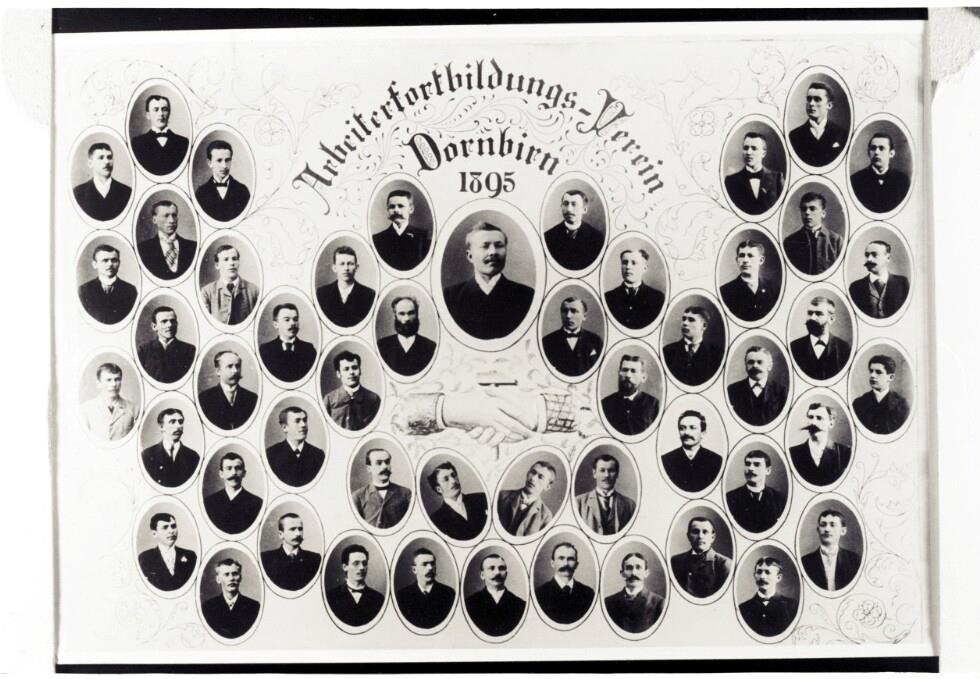 Arbeiterfortbildungs-Verein
Dornbirn
1895